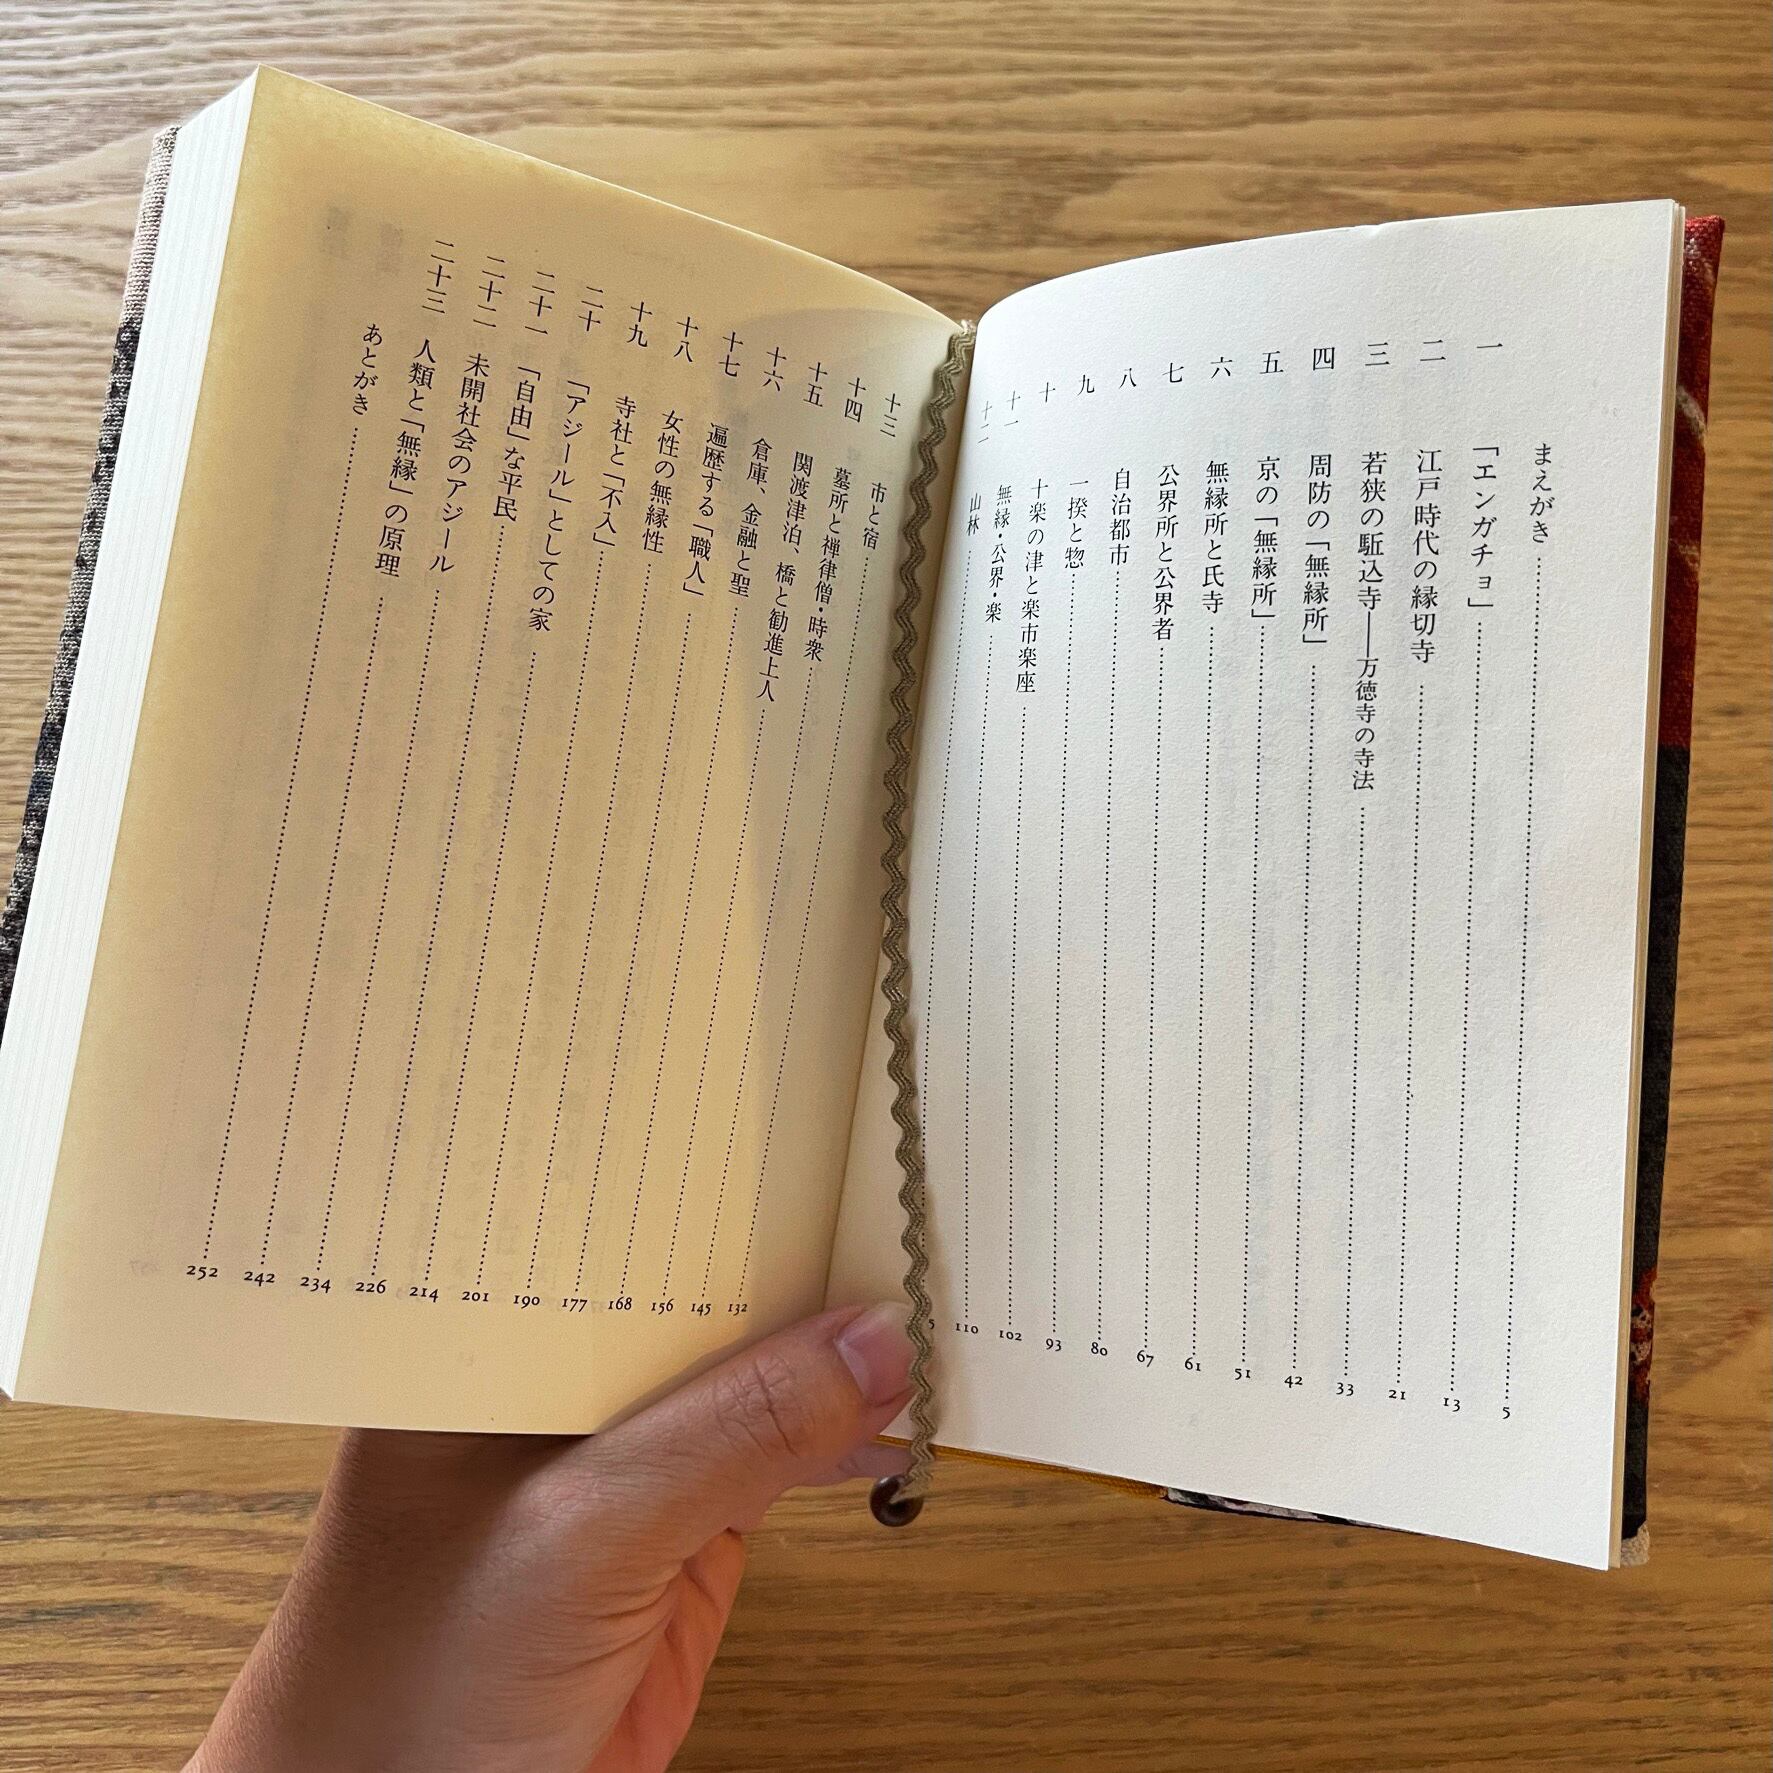 まえがき……5
一 「エンガチョ」……13
二 江戸時代の縁切寺……21
三 若狭の駈込寺――万徳寺の寺法……33
四 周防の「無縁所」……42
五 京の「無縁所」……51
六 無縁所と氏寺……61
七 公界所と公界者……67
八 自治都市……80
九 一揆と惣……93
十 十楽の津と楽市楽座……102
十一 無縁・公界・楽……110
十二 山林……
十三 市と宿……132
十四 墓所と禅律僧・時衆……145
十五 関渡津泊、橋と勧進上人……156
十六 倉庫、金融と聖……168
十七 遍歴する「職人」……177
十八 女性の無縁性……190
十九 寺社と「不入」……201
二十 「アジール」としての家……214
二十一 「自由」な平民……226
二十二 未開社会のアジール……234
二十三 人類と「無縁」の原理……242
あとがき……252